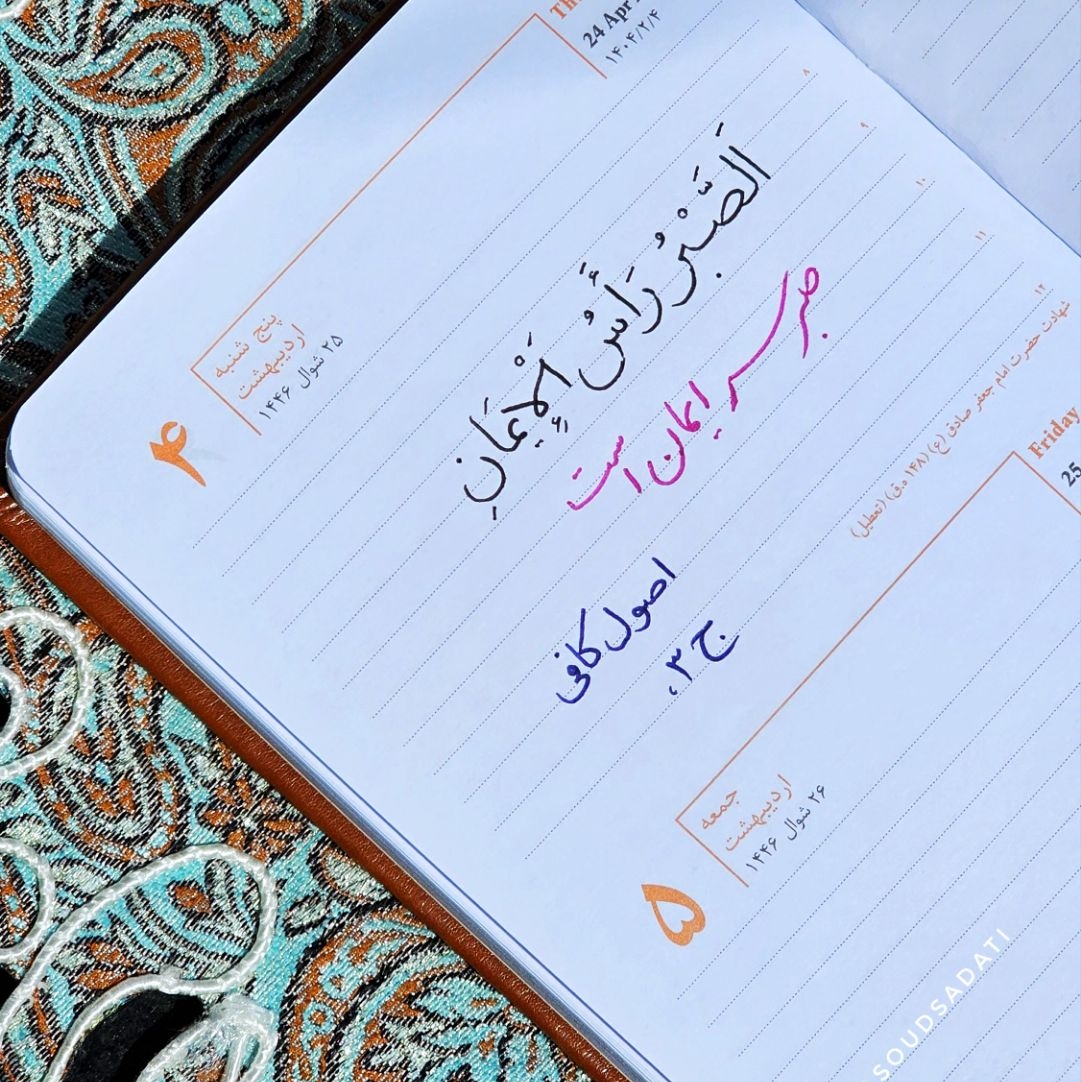 Th
24 Apr
۱۴۰۴/۲/۴
پنج شنبه
اردیبهشت
۲۵ شوال ۱۴۴۶
۴
۸
۹
۱۰
۱۱
۱۲
اَلصَّبْرُ رَأْسُ اَلْإِیمَانِ
صبر سر ایمان است
اصول کافی
ج ۳،
شهادت حضرت امام جعفر صادق (ع) (۱۴۸ ه.ق) (تعطیل)
Friday
25
جمعه
اردیبهشت
۲۶ شوال ۱۴۴۶
۵
SOUDSADATI